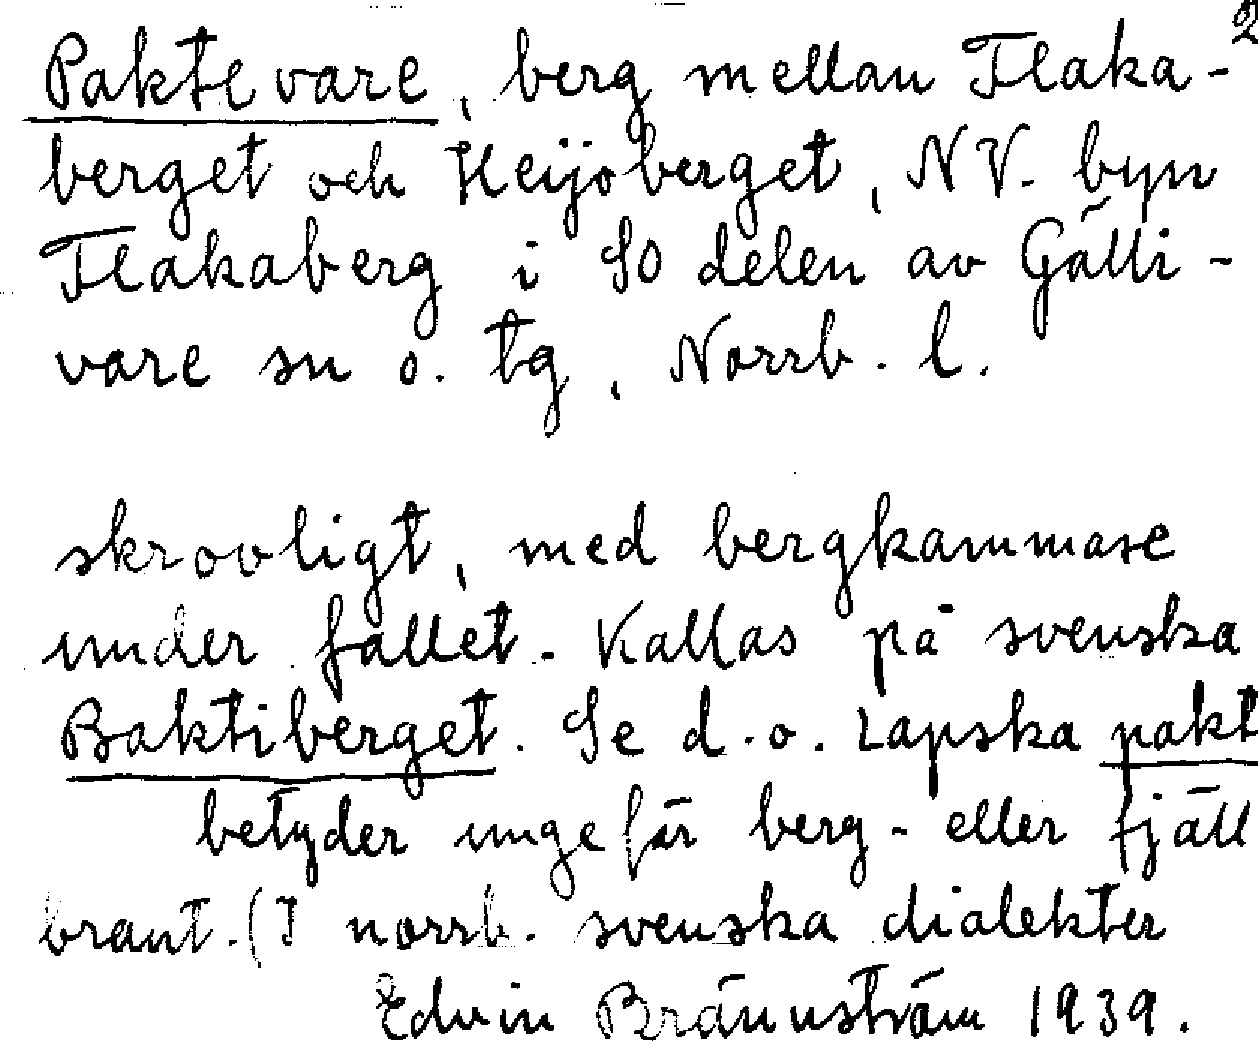 2
Paktevare, berg mellan Flaka-
berget och Keijoberget, NV. byn
Flakaberg i SO delen av Gälli-
vare sn o. tg, Norrb. l.
skrovligt, med bergkammare
under fallet. Kallas på svenska
Baktiberget. Se d.o. Lapska pakt
betyder ungefär berg- eller fjäll
brant. (I norrb. svenska dialekter
Edvin Brännström 1939.